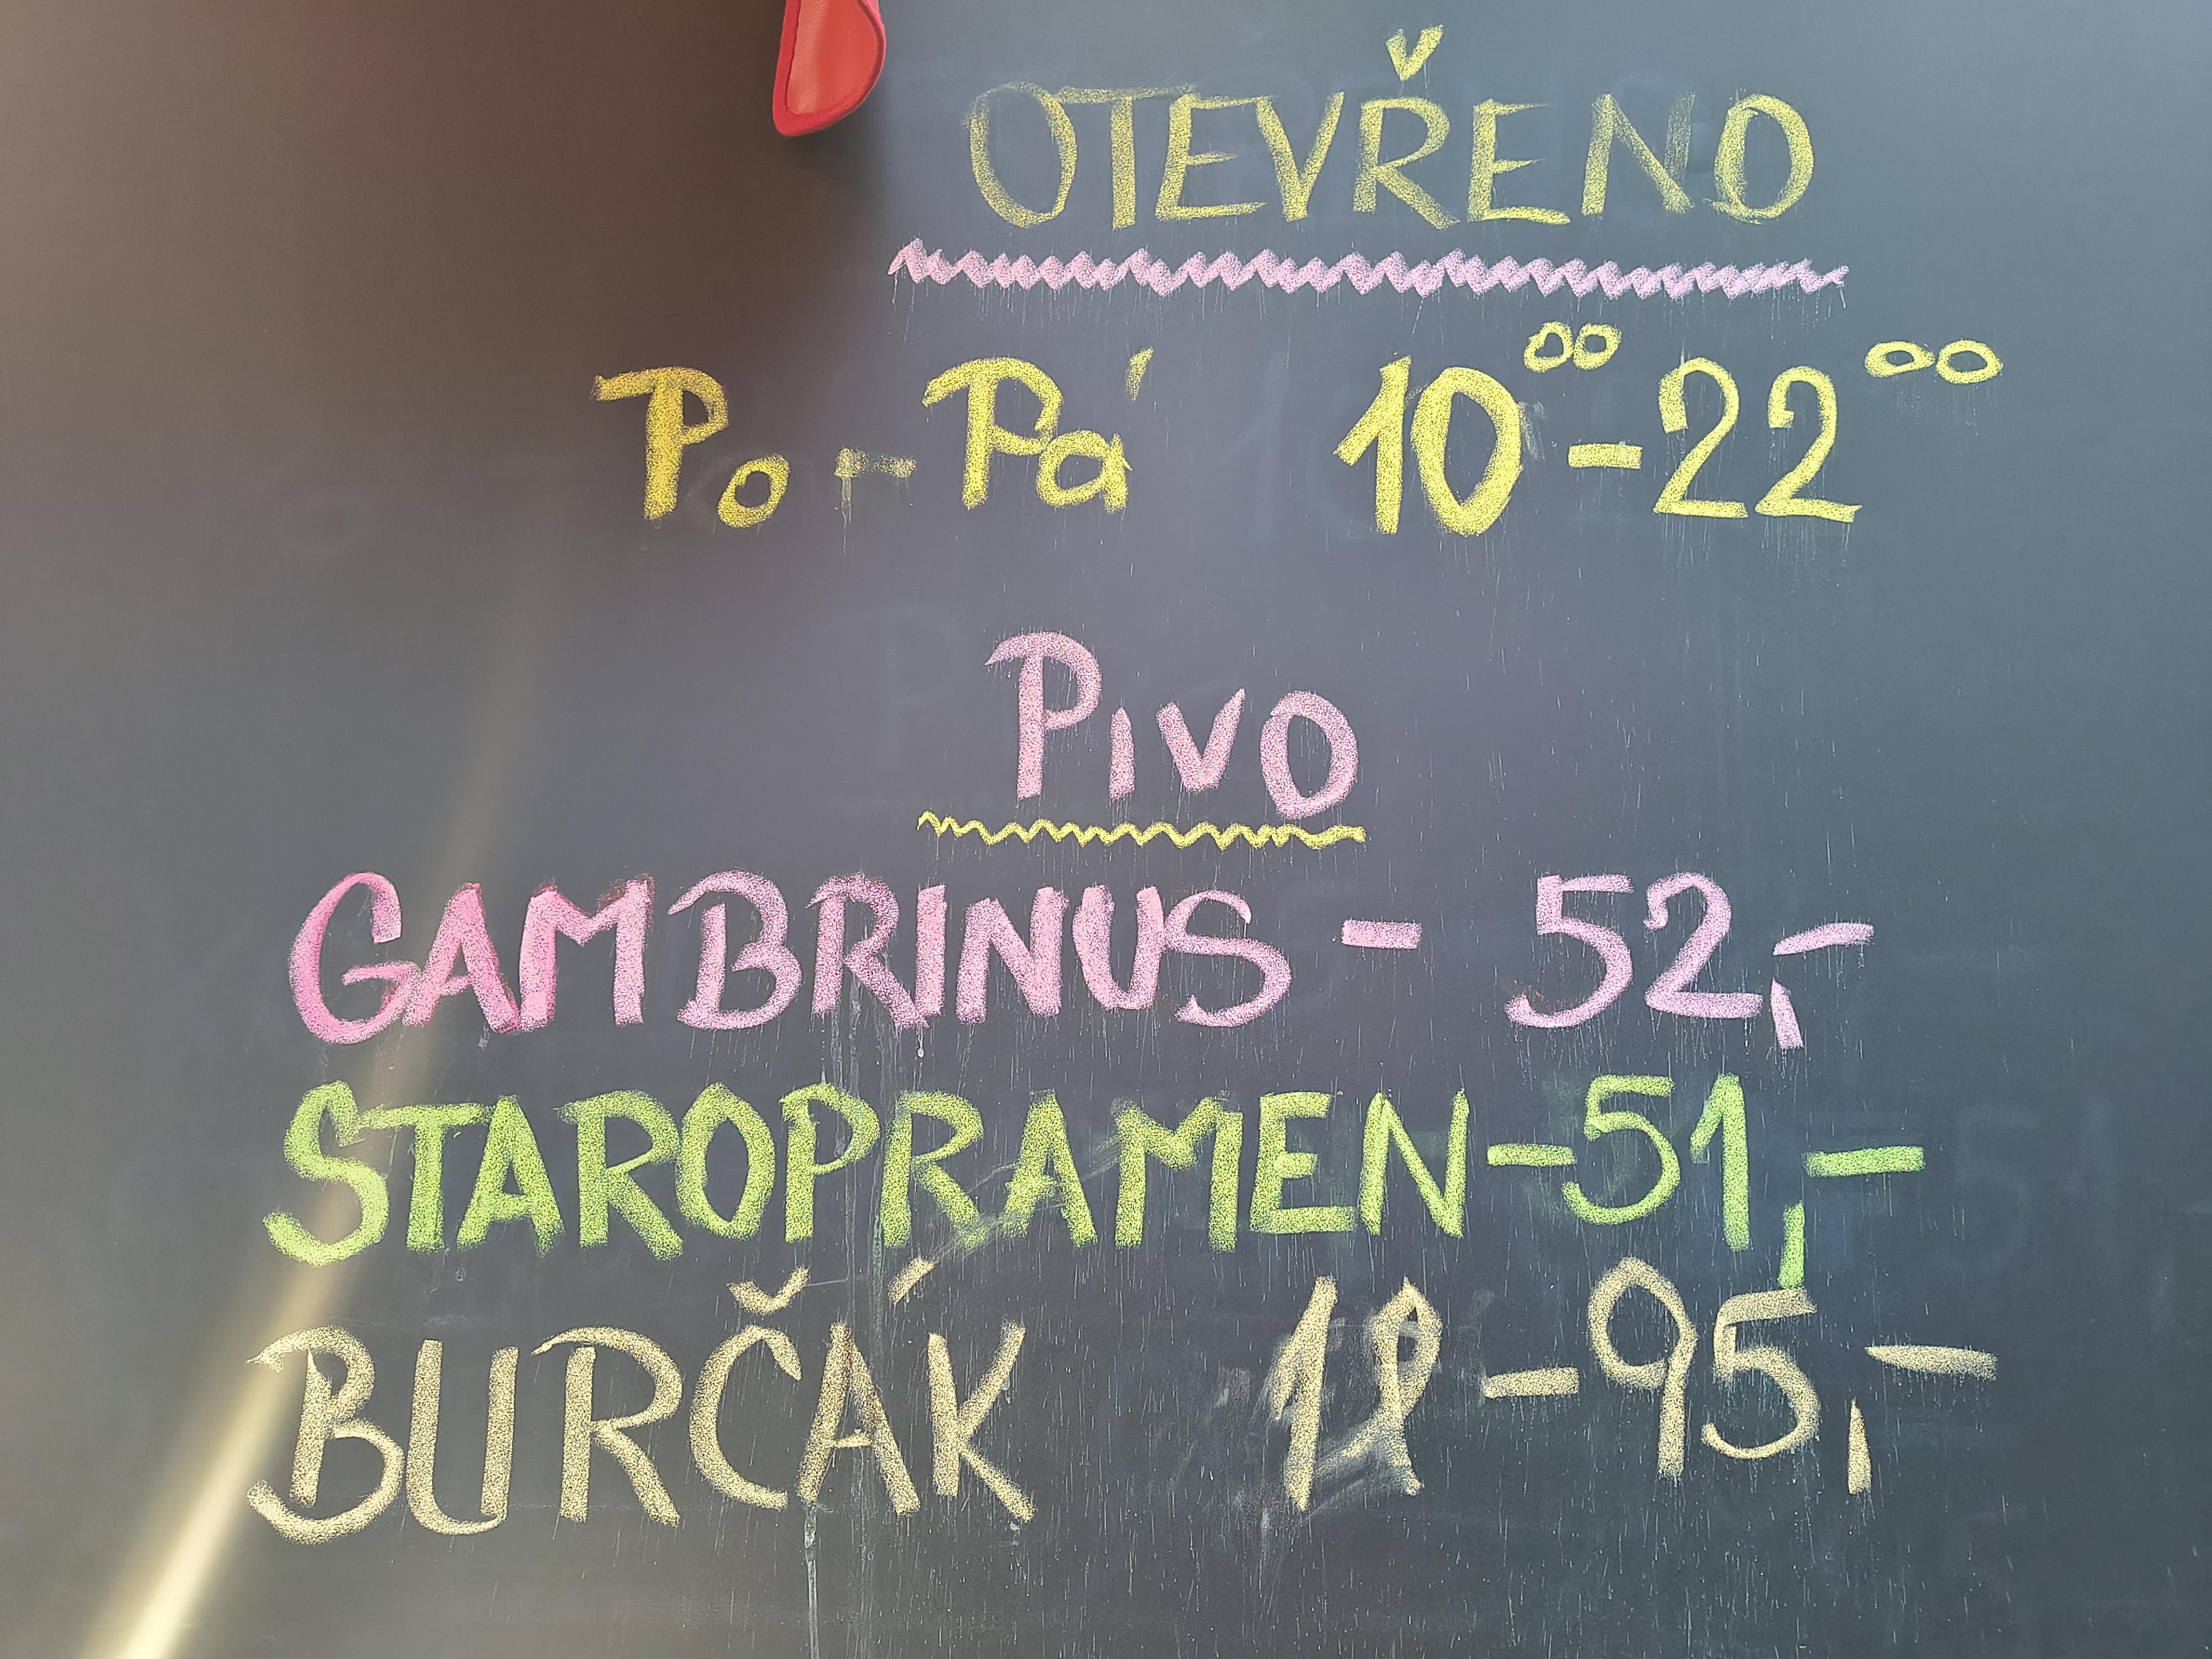 OTEVŘENO
Po - Pá 10⁰⁰ - 22⁰⁰
PIVO
GAMBRINUS - 52,-
STAROPRAMEN - 51,-
BURČÁK 1l - 95,-